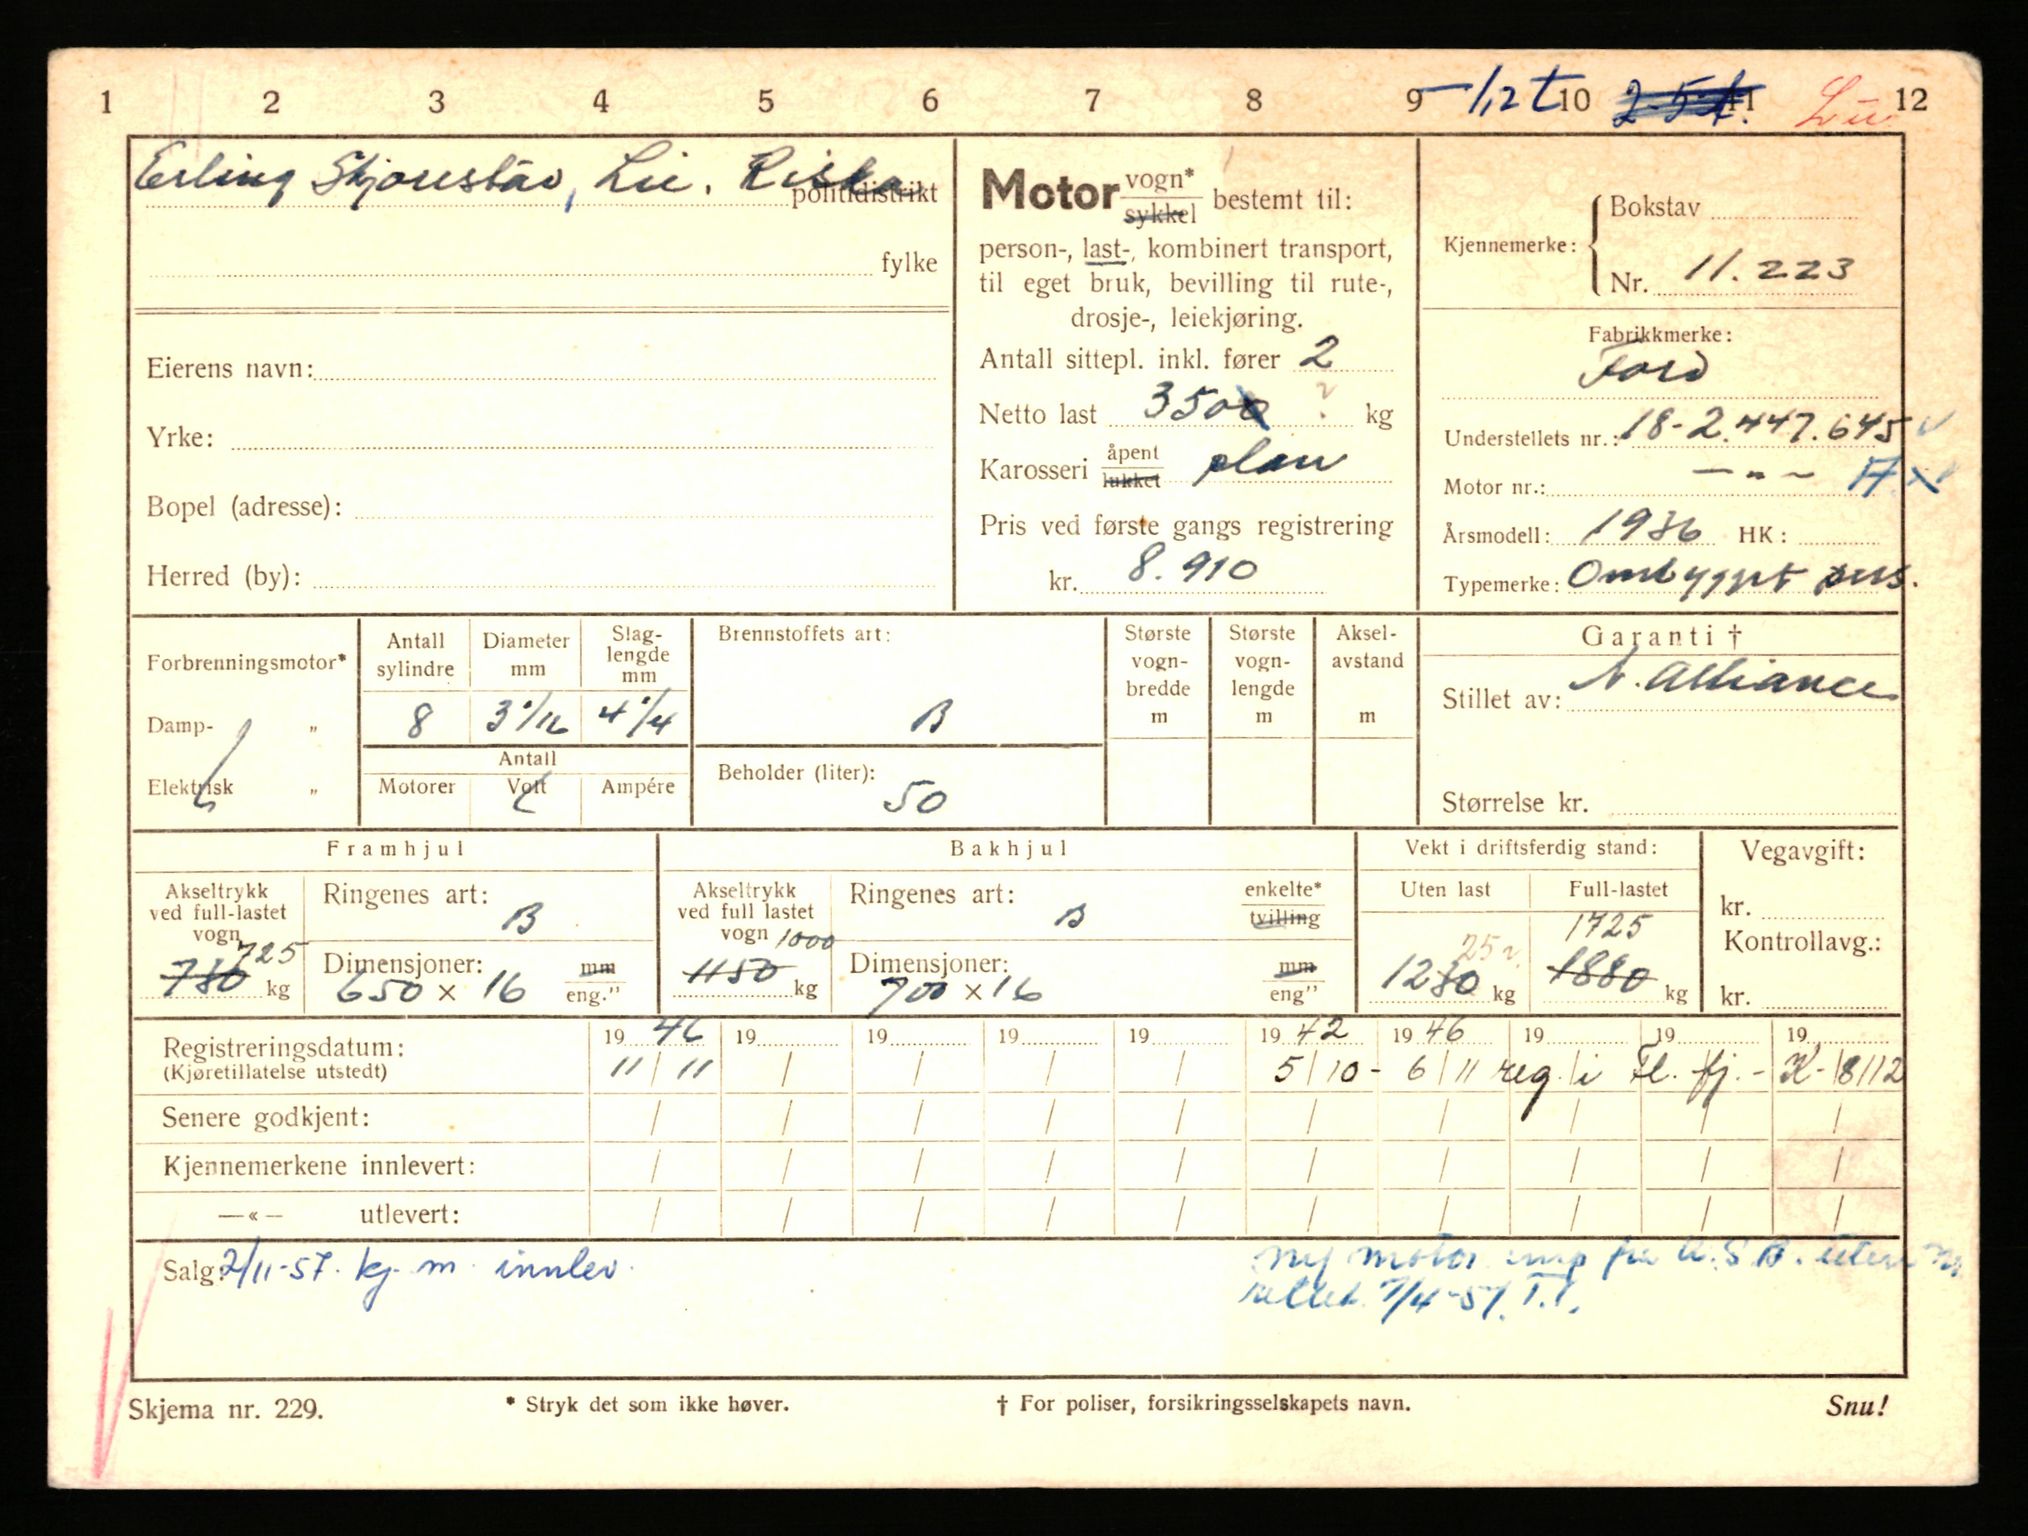 1 2 3 4 5 6 7 8 9 10 11 12
-1,2 t 2.5 t. Lu.
Erling Skjørestad, Lie. Riska politidistrikt
fylke
Eierens navn:
Yrke:
Bopel (adresse):
Herred (by):
Motor vogn* sykkel bestemt til:
person-, last-, kombinert transport,
til eget bruk, bevilling til rute-,
drosje-, leiekjøring.
Antall sittepl. inkl. fører 2
Netto last 3500 ? kg
Karosseri åpent lukket plan
Pris ved første gangs registrering
kr. 8.910
Kjennemerke: Bokstav
Nr. 11.223
Fabrikkmerke:
Ford
Understellets nr.: 18-2.447.645
Motor nr.: — „ —
Årsmodell: 1936 HK:
Typemerke: Ombygget pers.
Forbrenningsmotor*
Damp- „
Elektrisk „
Antall sylindre
8
Diameter mm
3 1/16
Slag-lengde mm
4 1/4
Antall
Motorer Volt Ampére
Brennstoffets art:
B
Beholder (liter):
50
Største vogn-bredde m
Største vogn-lengde m
Aksel-avstand m
Garanti †
Stillet av: N. Alliance
Størrelse kr.
Framhjul
Akseltrykk ved full-lastet vogn
725
780 kg
Ringenes art:
B
Dimensjoner:
650 × 16 mm eng."
Bakhjul
Akseltrykk ved full lastet vogn 1000
1150 kg
Ringenes art: enkelte* tvilling
B
Dimensjoner:
700 × 16 mm eng"
Vekt i driftsferdig stand:
Uten last Full-lastet
25 1725
1230 kg 1880 kg
Vegavgift:
kr.
Kontrollavg.:
kr.
Registreringsdatum:
(Kjøretillatelse utstedt)
19 46 19 19 19 19 19 42 19 46 19 19 19
11/11 / / / / 5/10 - 6/11 reg. i Fl. fj. - K- 8/12
Senere godkjent:
Kjennemerkene innlevert:
— « — utlevert:
Salg: 2/11-57. kj. m. innlev.
Ny motor imp fra U.S.A. uten nr
7/4-51. T.T.
Skjema nr. 229.
* Stryk det som ikke høver.
† For poliser, forsikringsselskapets navn.
Snu!